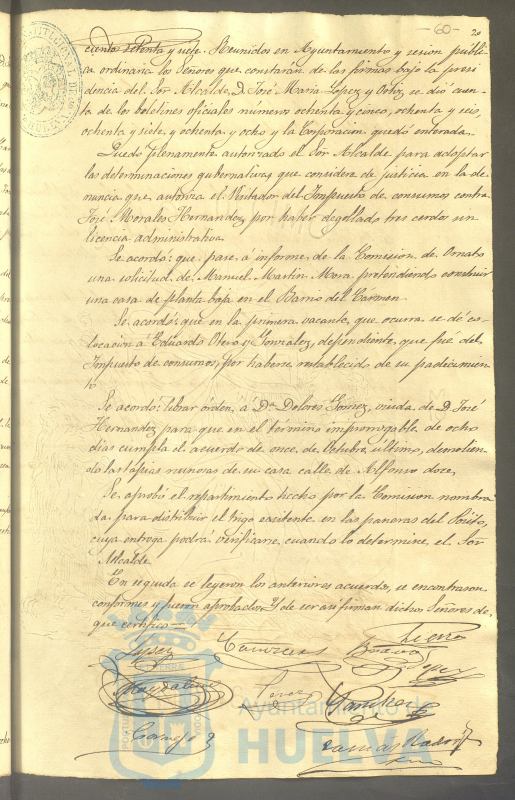 -60- 20
ciento setenta y siete. Reunidos en Ayuntamiento y sesion públi-
ca ordinaria los Señores que constarán de las firmas bajo la presi-
dencia del Sor Alcalde, D. José Maria Lopez y Ortiz, se dio cuen-
ta de los boletines oficiales números ochenta y cinco, ochenta y seis,
ochenta y siete, y ochenta y ocho y la Corporacion quedó enterada.
Quedó plenamente autorizado el Sor Alcalde para adoptar
las determinaciones gubernativas que considere de justicia en la de-
nuncia que autoriza el Visitador del Impuesto de consumos contra
José Morales Hernandez, por haber degollado tres cerdos sin
licencia administrativa.
Se acordó: que pase á informe de la Comision de Ornato
una solicitud de Manuel Martin Mora pretendiendo construir
una casa de planta baja en el Barrio del Carmen.
Se acordó: que en la primera vacante, que ocurra se dé co-
locacion á Eduardo Otero y Gonzalez, dependiente que fué del
Impuesto de consumos, por haberse restablecido de su padecimien-
to
Se acordó: librar órden á Da. Dolores Gomez, viuda de D. José
Hernandez para que en el término improrrogable de ocho
dias cumpla el acuerdo de once de Octubre último, demolien-
do las tapias ruinosas de su casa calle de Alfonso doce.
Se aprobó el repartimiento hecho por la Comision nombra-
da para distribuir el trigo existente en las paneras del Pósito,
cuya entrega podrá verificarse cuando lo determine el Sor
Alcalde
En seguida se leyeron los anteriores acuerdos, se encontraron
conformes y fueron aprobados. Y de ser asi firman dichos Señores de
que certifico =
Lopez
Perez
Cornejo
Ayuntamiento de
HUELVA